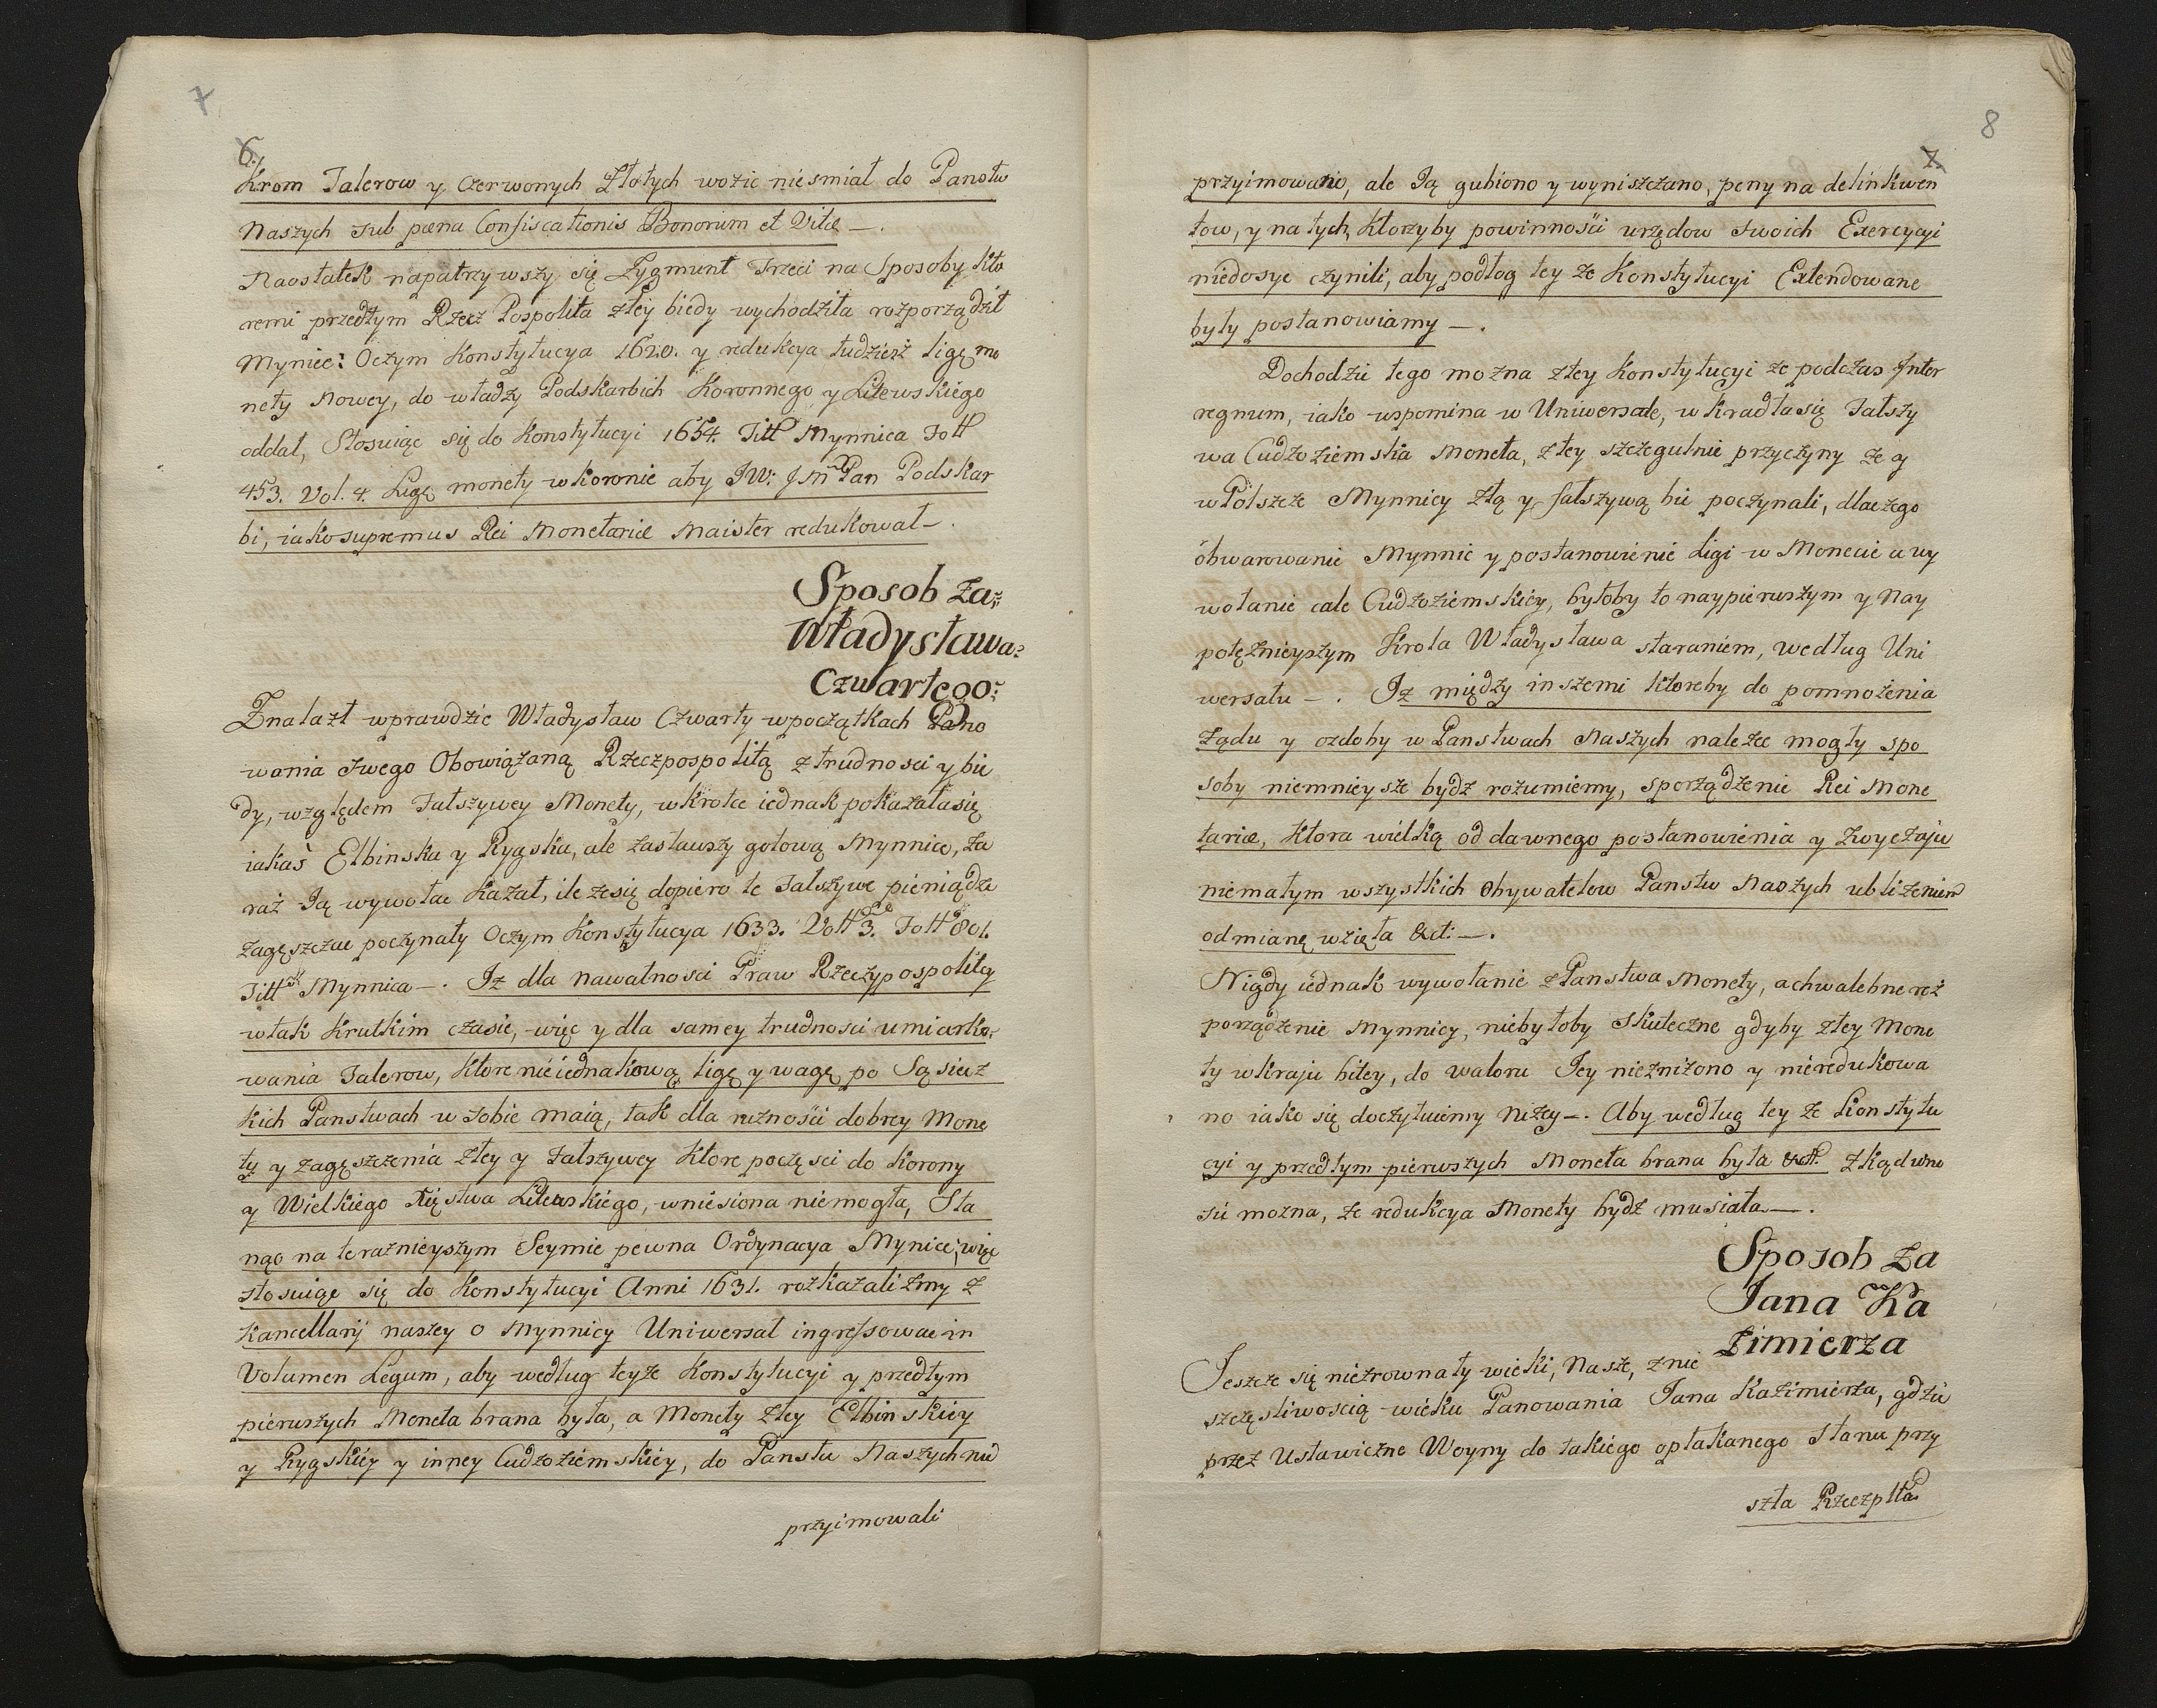 7
6.
Krom Talerow y Czerwonych Złotych wozic niesmiał do Panstw
Naszych sub pæna Confiscationis Bonorum et Vitæ —.
Naostatek napatrzywszy się Zygmunt Trzeci na Sposoby kto
remi przedtym Rzecz Pospolita ztey biedy wychodziła rozporządził
Mynice: Oczym Konstytucya 1620. y redukcya tudziesz ligę mo
nety Nowey, do władzy Podskarbich Koronnego y Litewskiego
oddał, Stosuiąc się do Konstytucyi 1654. Titt Mynnica Foll
453. Vol. 4. Ligę monety w koronie aby JW: JMP Pan Podskar
bi, iako supremus Rei Monetariæ Maister redukował —.
Sposob za
Władysława
Czwartego
Znalazł wprawdzie Władysław Czwarty wpoczątkach Pano
wania swego Obowiązaną Rzeczpospolitą z trudnosci y bie
dy, względem Fałszywey Monety, w krotce iednak pokazała się
iakaś Elbinska y Rygska, ale zastawszy gotową Mynnicę, za
raz Ją wywołac kazał, ile ze się dopiero te Fałszywe pieniądze
zagęszczac poczynały Oczym Konstytucya 1633. Voll 3. Foll 801.
Titt Mynnica —. Iz dla nawalnosci Praw Rzeczypospolitey
w tak krutkim czasie, więc y dla samey trudnosci umiarko
wania Talerow, ktore nieiednakową ligę y wagę po Sąsiedz
kich Panstwach w sobie maią, tak dla roznosci dobrey Mone
ty y zagęszczenia złey y Fałszywey ktore poczęsci do Korony
y Wielkiego Xięstwa Litewskiego, wniesiona niemogła, Sta
nąc na teraznieyszym Seymie pewna Ordynacya Mynice, więc
stosuiąc się do Konstytucyi Anni 1631. rozkazalizmy z
Kancellarij naszey o Mynnicy Uniwersał ingressowac in
Volumen Legum, aby według teyze Konstytucyi y przedtym
pierwszych Moneta brana była, a Monety złey Elbinskiey
y Rygskiey y inney Cudzoziemskiey, do Panstw Naszych nie
przyimowali
8
7.
przyimowano, ale Ją gubiono y wyniszczano, peny na delinkwen
tow, y na tych, ktorzyby powinnosci urzędow swoich Exercycyi
niedosyc czynili, aby podług tey ze Konstytucyi Extendowane
były postanowiamy —.
Dochodzic tego mozna z tey Konstytucyi ze podczas Inter
regnum, iako wspomina w Uniwersale, wkradła się Fałszy
wa Cudzoziemska Moneta, z tey szczegulnie przyczyny ze y
w Polszcze Mynnicy złą y fałszywą bic poczynali, dlaczego
obwarowanie Mynnic y postanowienie Ligi w Monecie a wy
wołanie cale Cudzoziemskiey, byłoby to naypierwszym y Nay
potęznieyszym Krola Władysława staraniem, według Uni
wersału —. Iz między inszemi ktoreby do pomnozenia
rządu y ozdoby w Panstwach Naszych nalezec mogły spo
soby niemnieysze bydz rozumiemy, sporządzenie Rei Mone
tariæ, ktora wielką od dawnego postanowienia y zwyczaju
niemałym wszystkich Obywatelow Panstw Naszych ublizeniem
odmianę wzięła &ct: —.
Nigdy iednak wywołanie z Panstwa Monety, a chwalebne roz
porządzenie Mynnicy, niebyłoby skuteczne gdyby złey Mone
ty w kraju bitey, do waloru Jey nieznizono y nieredukowa
no iako się doczytuiemy nizey —. Aby według tey ze Konstytu
cyi y przedtym pierwszych Moneta brana była &ct. Zkąd wno
sic mozna, ze redukcya Monety bydz musiała —.
Sposob za
Jana Ka
zimierza
Jeszcze się niezrownały wieki, Nasze, z nie
szczęsliwoscią wieku Panowania Jana Kazimierza, gdzie
przez Ustawiczne Woyny do takiego opłakanego Stanu przy
szła Rzeczptta